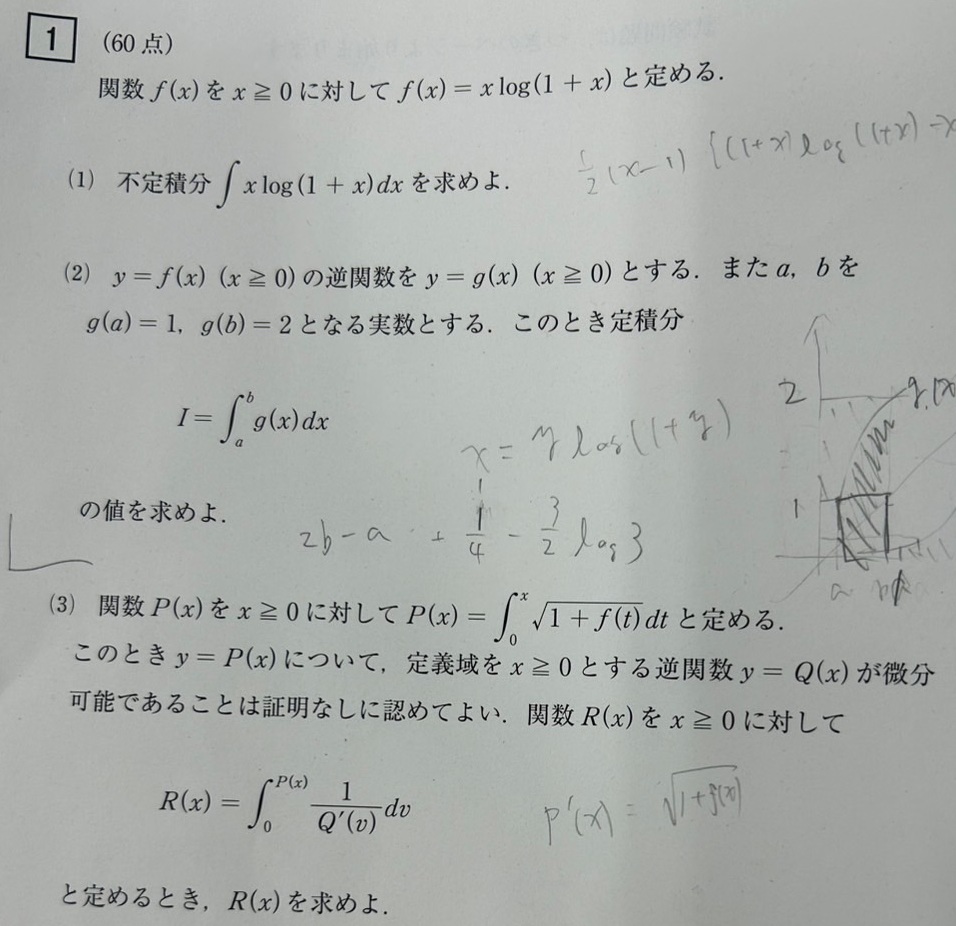 1 (60点)
関数 f(x) を x ≧ 0 に対して f(x) = x log(1 + x) と定める.
½(x−1) {(1+x) log (1+x) −x
(1) 不定積分 ∫ x log(1 + x) dx を求めよ.
(2) y = f(x) (x ≧ 0) の逆関数を y = g(x) (x ≧ 0) とする. また a, b を
g(a) = 1, g(b) = 2 となる実数とする. このとき定積分
2 g(x)
I = ∫_a^b g(x) dx
x = y log(1+y)
1
の値を求めよ.
2b − a + 1/4 − 3/2 log 3
a b
(3) 関数 P(x) を x ≧ 0 に対して P(x) = ∫_0^x √(1 + f(t)) dt と定める.
このとき y = P(x) について, 定義域を x ≧ 0 とする逆関数 y = Q(x) が微分
可能であることは証明なしに認めてよい. 関数 R(x) を x ≧ 0 に対して
R(x) = ∫_0^{P(x)} 1/Q′(v) dv
P′(x) = √(1+f(x))
と定めるとき, R(x) を求めよ.